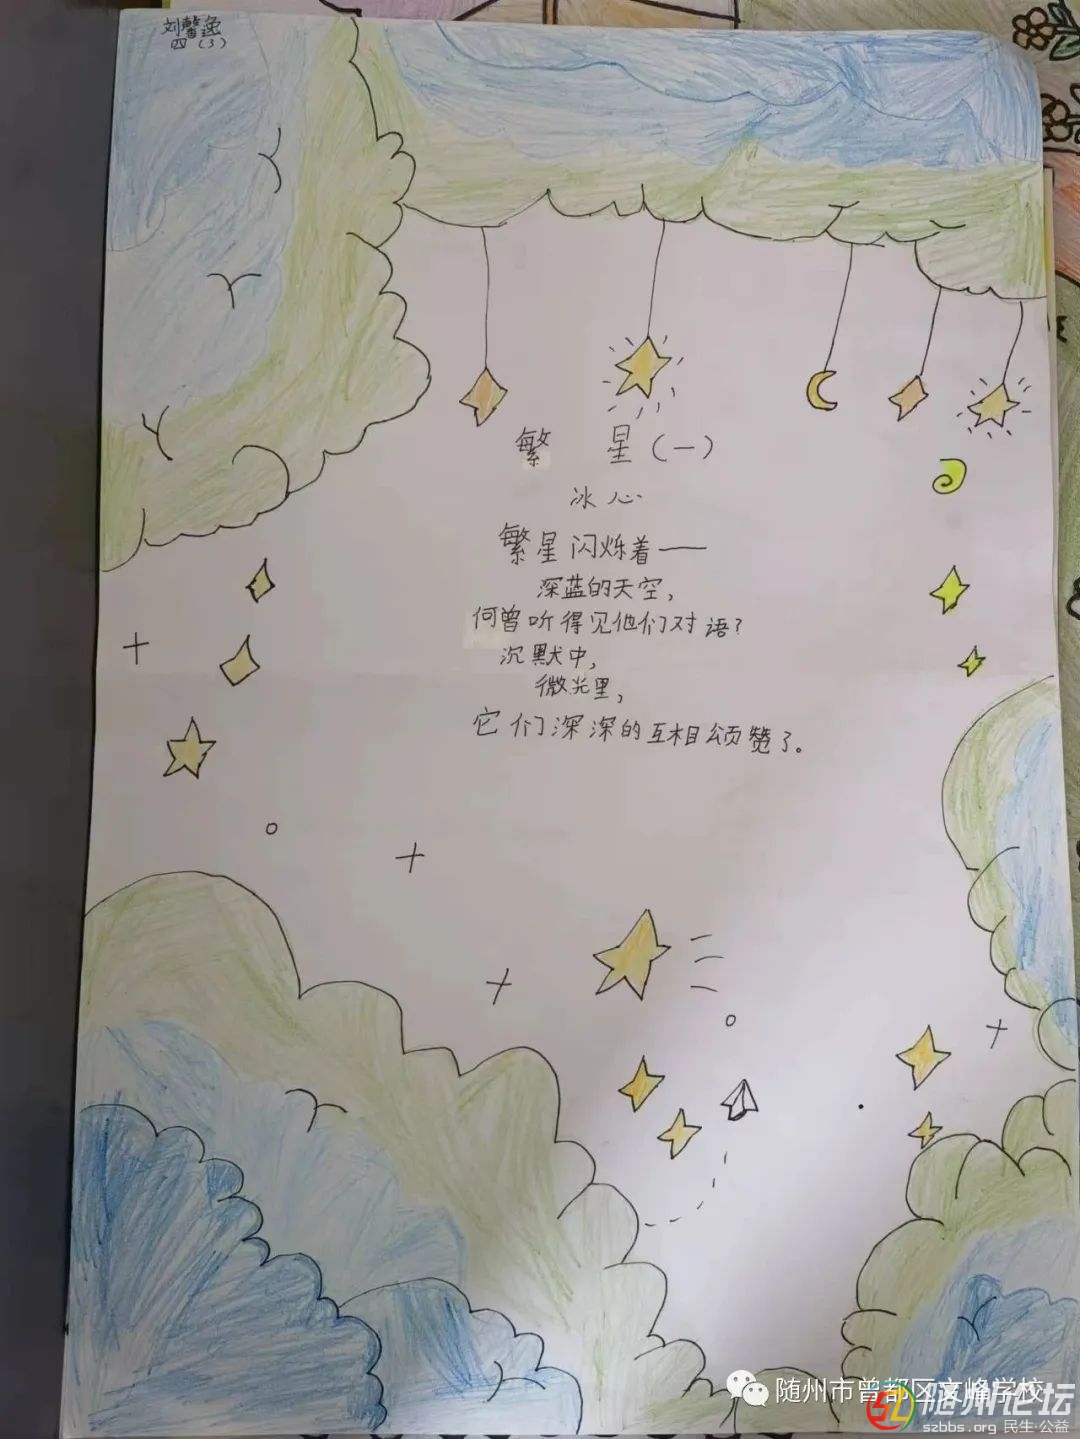 刘馨逸
四（3）
繁 星（一）
冰心
繁星闪烁着——
深蓝的天空，
何曾听得见他们对语？
沉默中，
微光里，
它们深深的互相颂赞了。
随州市曾都区文峰学校
随州论坛
szbbs.org 民生·公益